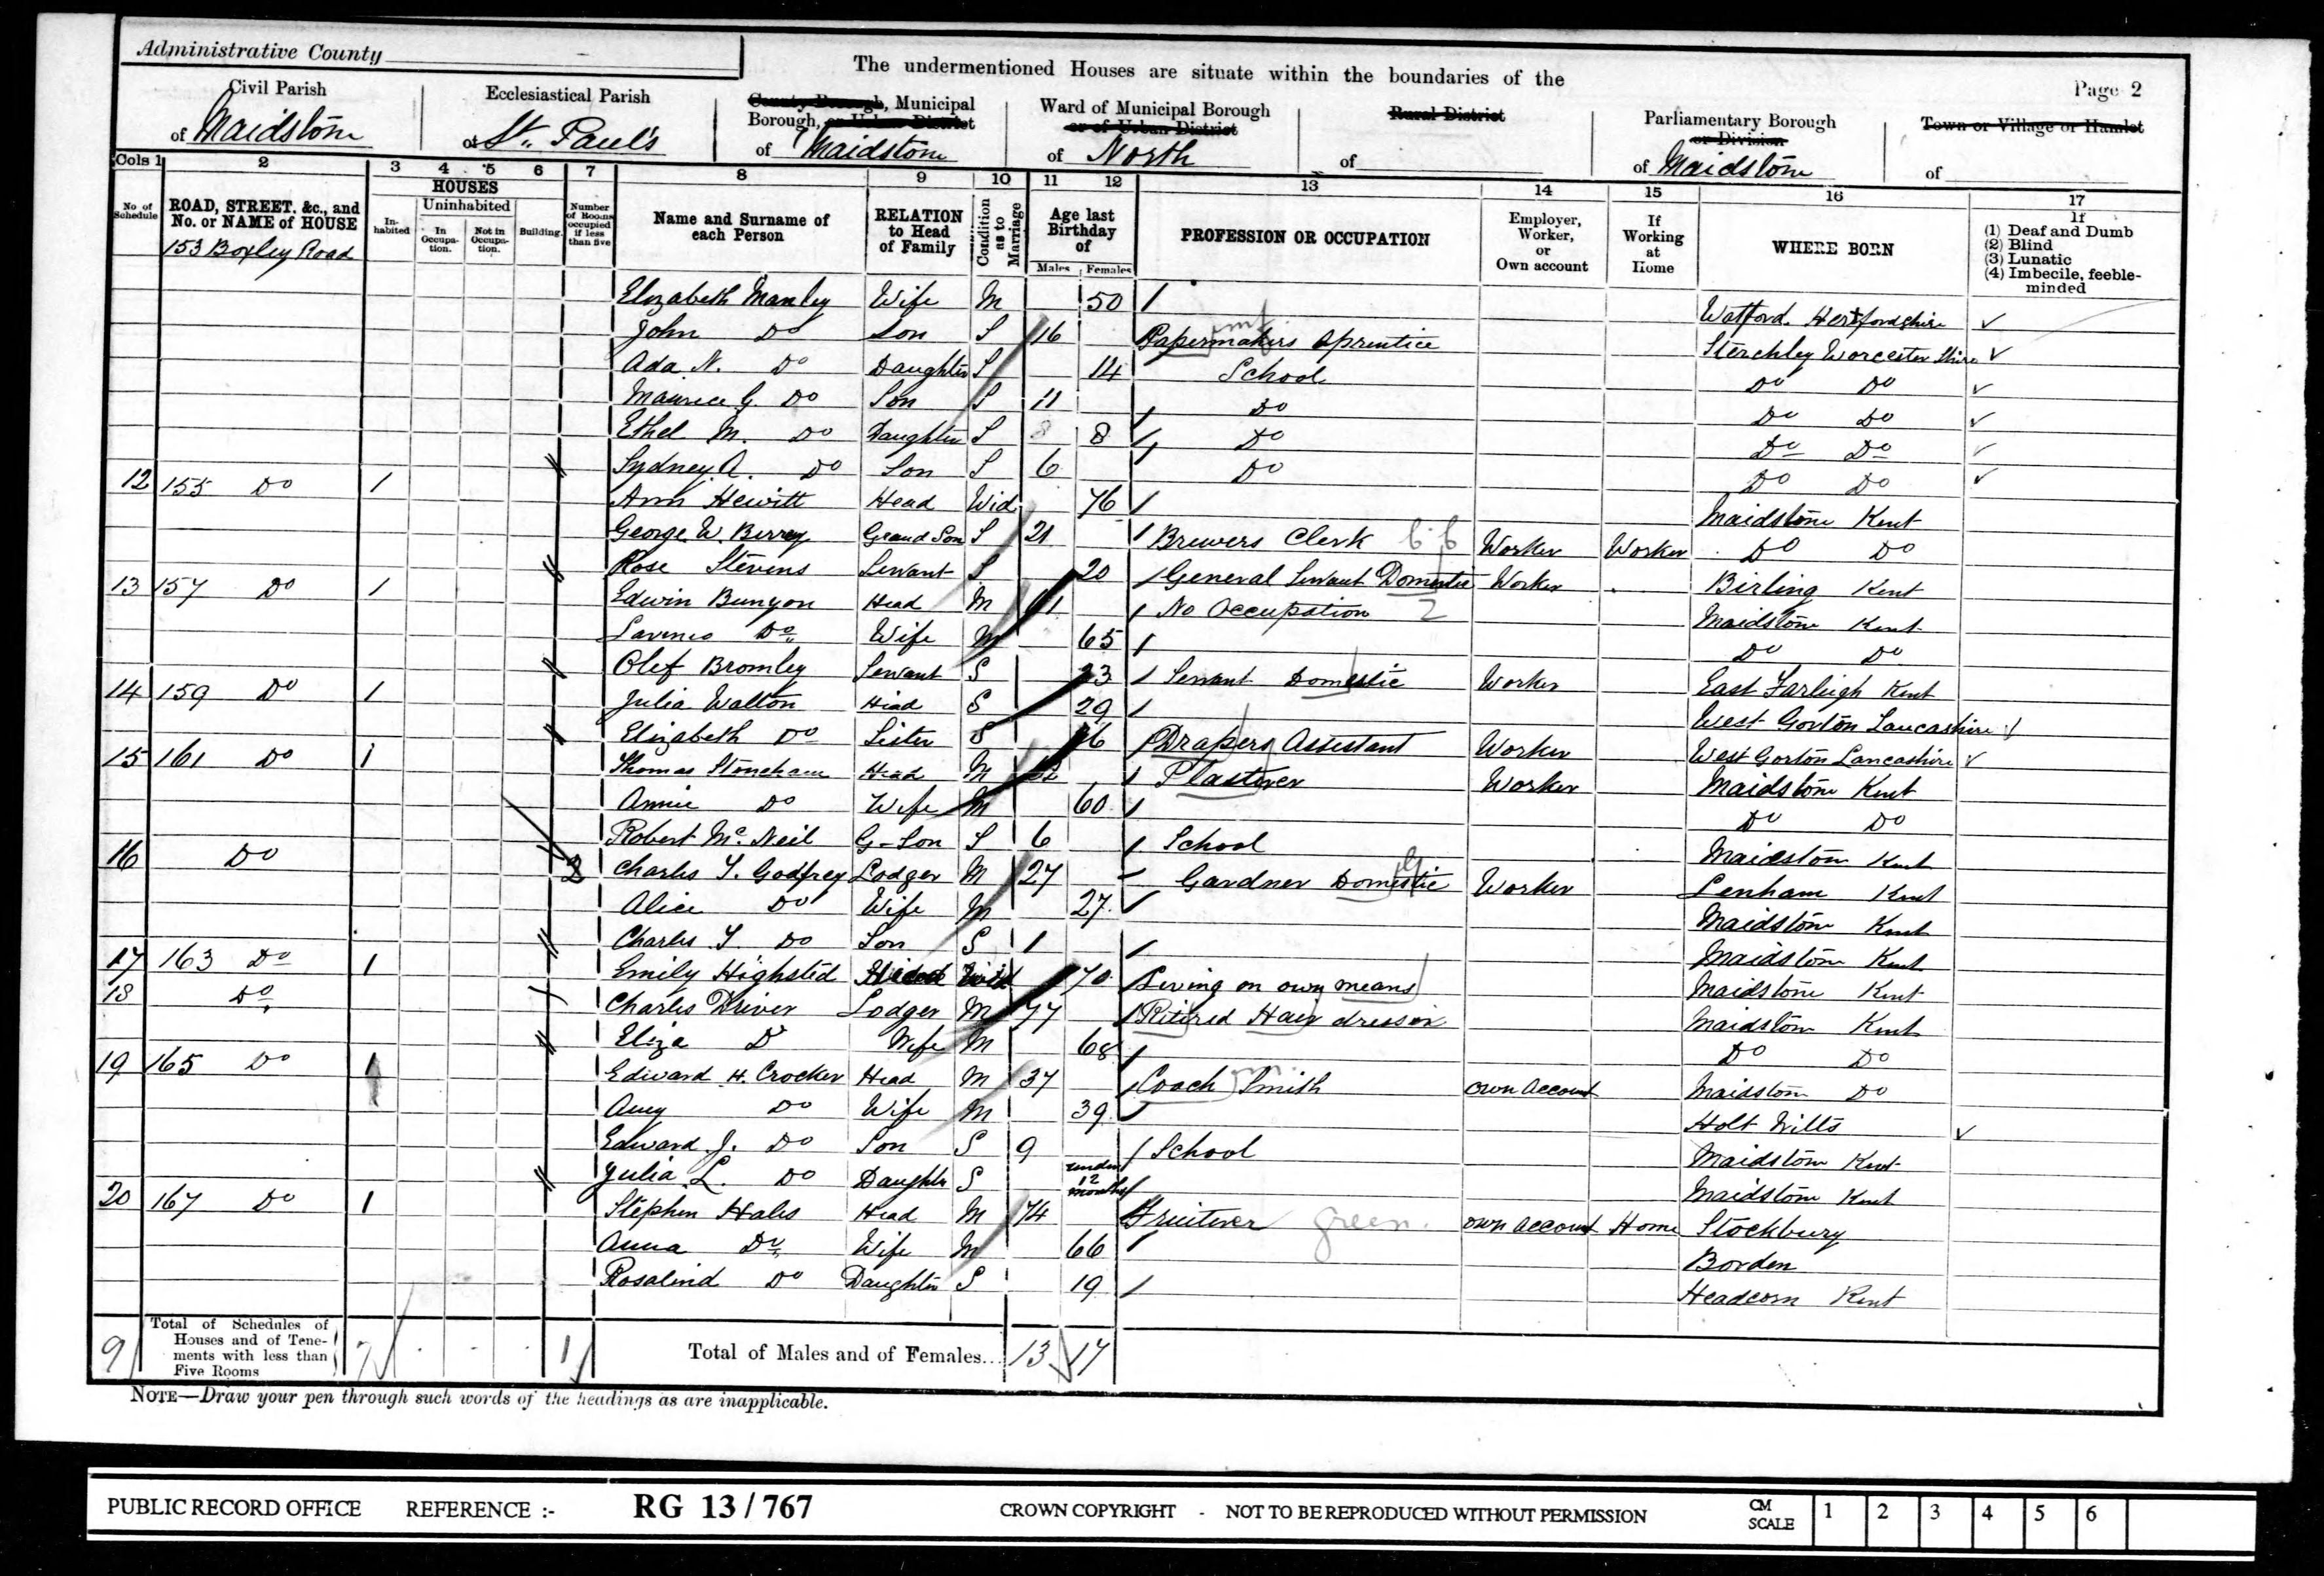 Administrative County
The undermentioned Houses are situate within the boundaries of the
Page 2
Civil Parish
of Maidstone
Ecclesiastical Parish
of St. Paul's
County Borough, Municipal
Borough, or Urban District
of Maidstone
Ward of Municipal Borough
or of Urban District
of North
Rural District
of
Parliamentary Borough
or Division
of Maidstone
Town or Village or Hamlet
of
Cols 1 2 3 4 5 6 7 8 9 10 11 12 13 14 15 16 17
No of Schedule
ROAD, STREET, &c., and No. or NAME of HOUSE
HOUSES
In-habited
Uninhabited
In Occupa-tion.
Not in Occupa-tion.
Building.
Number of Rooms occupied if less than five
Name and Surname of each Person
RELATION to Head of Family
Condition as to Marriage
Age last Birthday of
Males Females
PROFESSION OR OCCUPATION
Employer, Worker, or Own account
If Working at Home
WHERE BORN
If
(1) Deaf and Dumb
(2) Blind
(3) Lunatic
(4) Imbecile, feeble-minded
153 Boxley Road
Elizabeth Manley Wife M 50 Watford. Hertfordshire
John Do Son S 16 Papermakers Aprentice Sterchley Worcester Shire
Ada N. Do Daughter S 14 School Do Do
Maurice G. Do Son S 11 Do Do Do
Ethel M. Do Daughter S 8 8 Do Do Do
Sydney A. Do Son S 6 Do Do Do
12 155 Do 1 Ann Hewitt Head Wid 76 Maidstone Kent
George W. Berrey Grand Son S 21 Brewers Clerk Worker Worker Do Do
Rose Stevens Servant S 20 General Servant Domestic Worker Birling Kent
13 157 Do 1 Edwin Bunyon Head M No Occupation 2 Maidstone Kent
Do Wife M 65 Do Do
Bromley Servant S 23 Servant Domestic Worker East Farleigh Kent
14 159 Do 1 Julia Walton Head S 29 West Gorton Lancashire
Elizabeth Do Sister S Drapers Assistant Worker West Gorton Lancashire
15 161 Do 1 Thomas Stoneham Head M Plasterer Worker Maidstone Kent
Annie Do Wife M 60 Do Do
Robert Mc. Neil G-Son S 6 School Maidstone Kent
16 Do Charles T. Godfrey Lodger M 27 Gardner Domestic Worker Lenham Kent
Alice Do Wife M 27 Maidstone Kent
Charles T Do Son S 1 Maidstone Kent
17 163 Do 1 Emily Highsted Head Wid 70 Living on own means Maidstone Kent
18 Do Charles Driver Lodger M 77 Retired Hair dresser Maidstone Kent
Eliza D Wife M 68 Do Do
19 165 Do 1 Edward H. Crocker Head M 37 Coach Smith own Account Maidstone Do
Amy Do Wife M 39 Holt Wilts
Edward J. Do Son S 9 School Maidstone Kent
Julia L. Do Daughter S under 12 months Maidstone Kent
20 167 Do 1 Stephen Hales Head M 74 Fruiterer green. own account Home Stockbury
Anna Do Wife M 66 Borden
Rosalind Do Daughter S 19 Headcorn Kent
9 Total of Schedules of Houses and of Tene-ments with less than Five Rooms 7 1 Total of Males and of Females... 13 17
NOTE—Draw your pen through such words of the headings as are inapplicable.
PUBLIC RECORD OFFICE REFERENCE :- RG 13 / 767 CROWN COPYRIGHT - NOT TO BE REPRODUCED WITHOUT PERMISSION CM SCALE 1 2 3 4 5 6